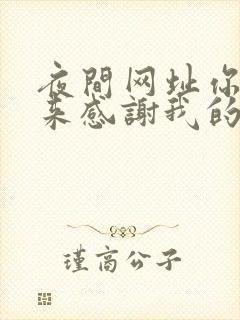 夜間网址你
来感謝我的
瑾高公子